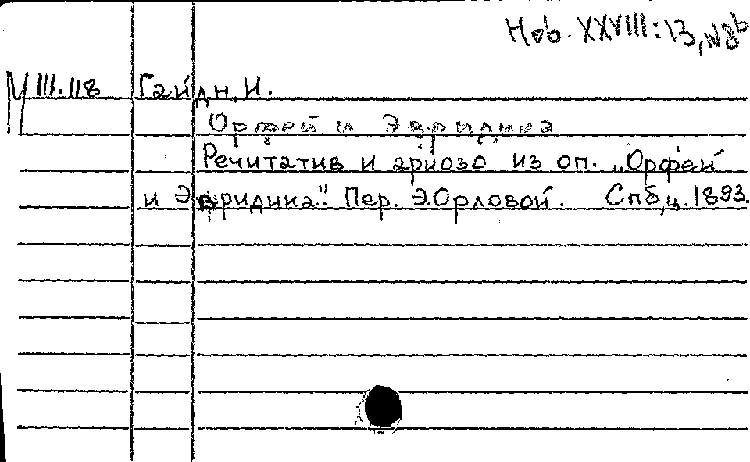 Hob. XXVIII:13, №8b
M III.118 Гайдн, И.
Орфей и Эвридика
Речитатив и ариозо из оп. „Орфей
и Эвридика". Пер. Э.Орловой. Спб, ц. 1893.